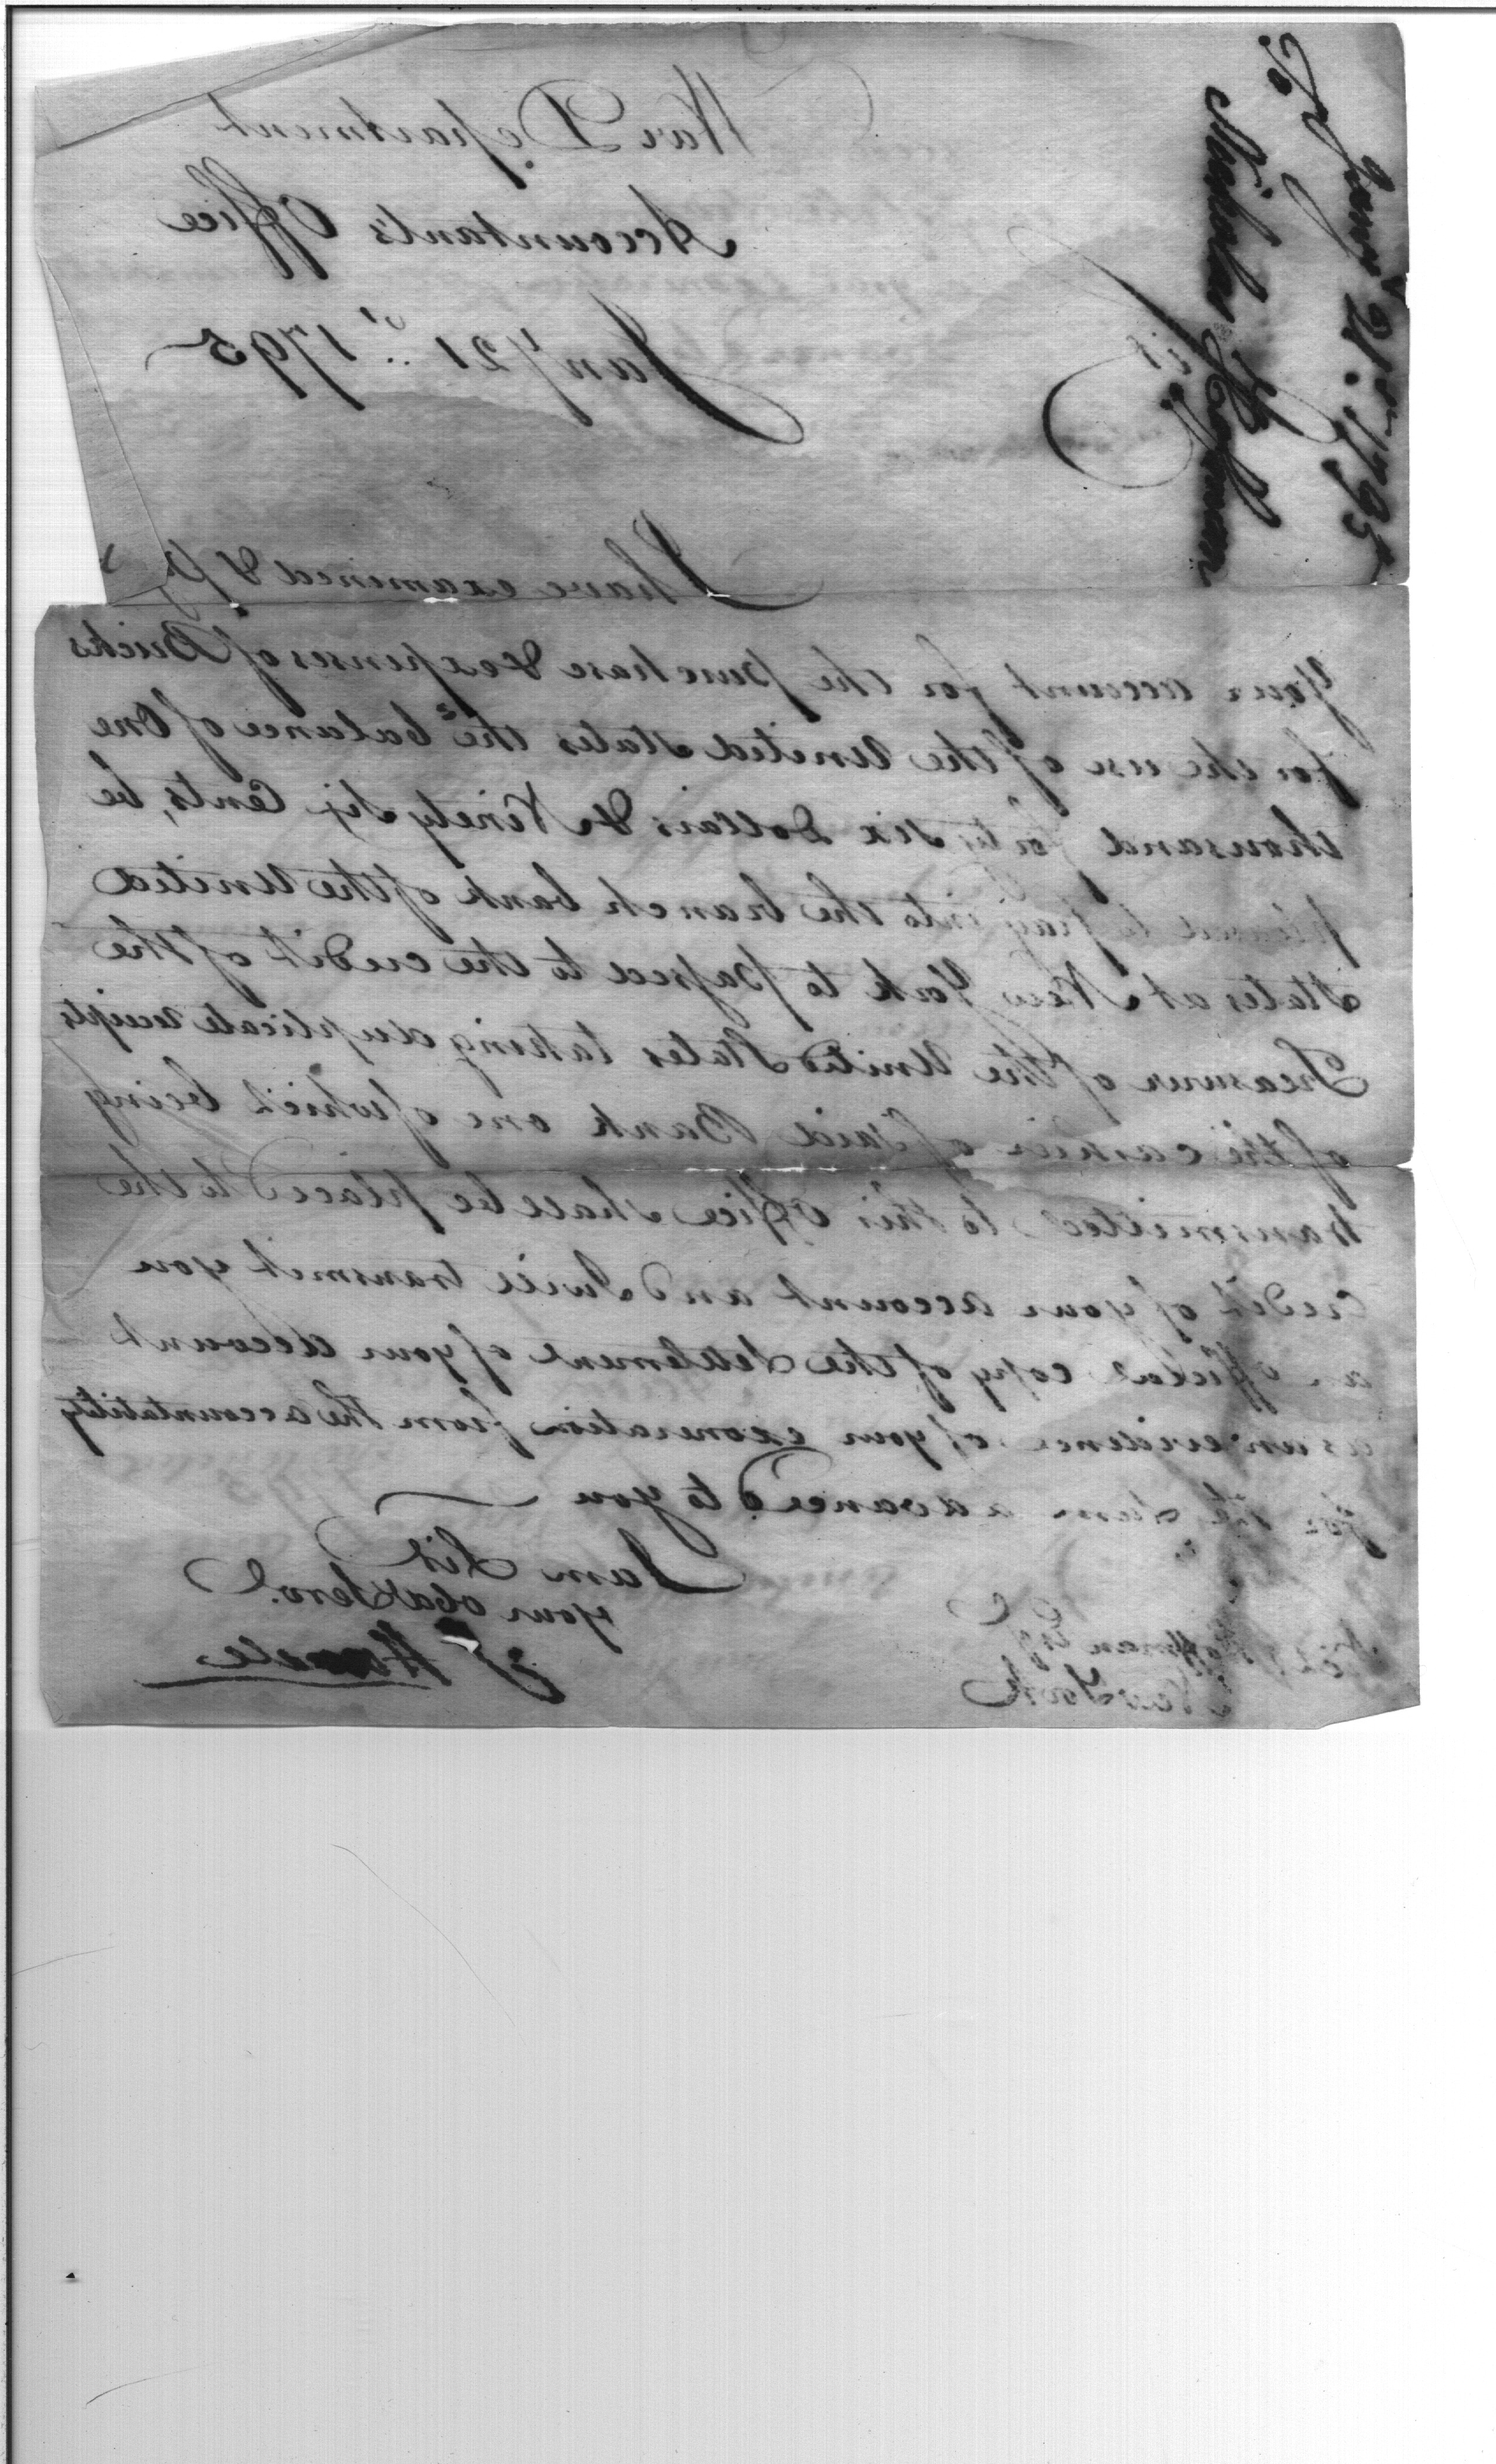 To
Nicholas Hoffman
Jany 21st 1795
War Department
Accountants Office
Jany 21st 1795
Sir
I have examined &
your account for the purchase & expenses of Bricks
for the use of the United States the balance of One
thousand forty six Dollars & Ninety six Cents, be
pleased to pay into the branch bank of the United
States at New York to passed to the credit of the
Treasurer of the United States taking duplicate receipts
of the cashier of said Bank one of which being
transmitted to this Office shall be placed to the
credit of your account and I will transmit you
an official copy of the Settlement of your account
as an evidence of your exoneration from the accountability
for the sum advanced to you
I am Sir
your obdt Servt
J Howell
Hoffman Esqr
New York